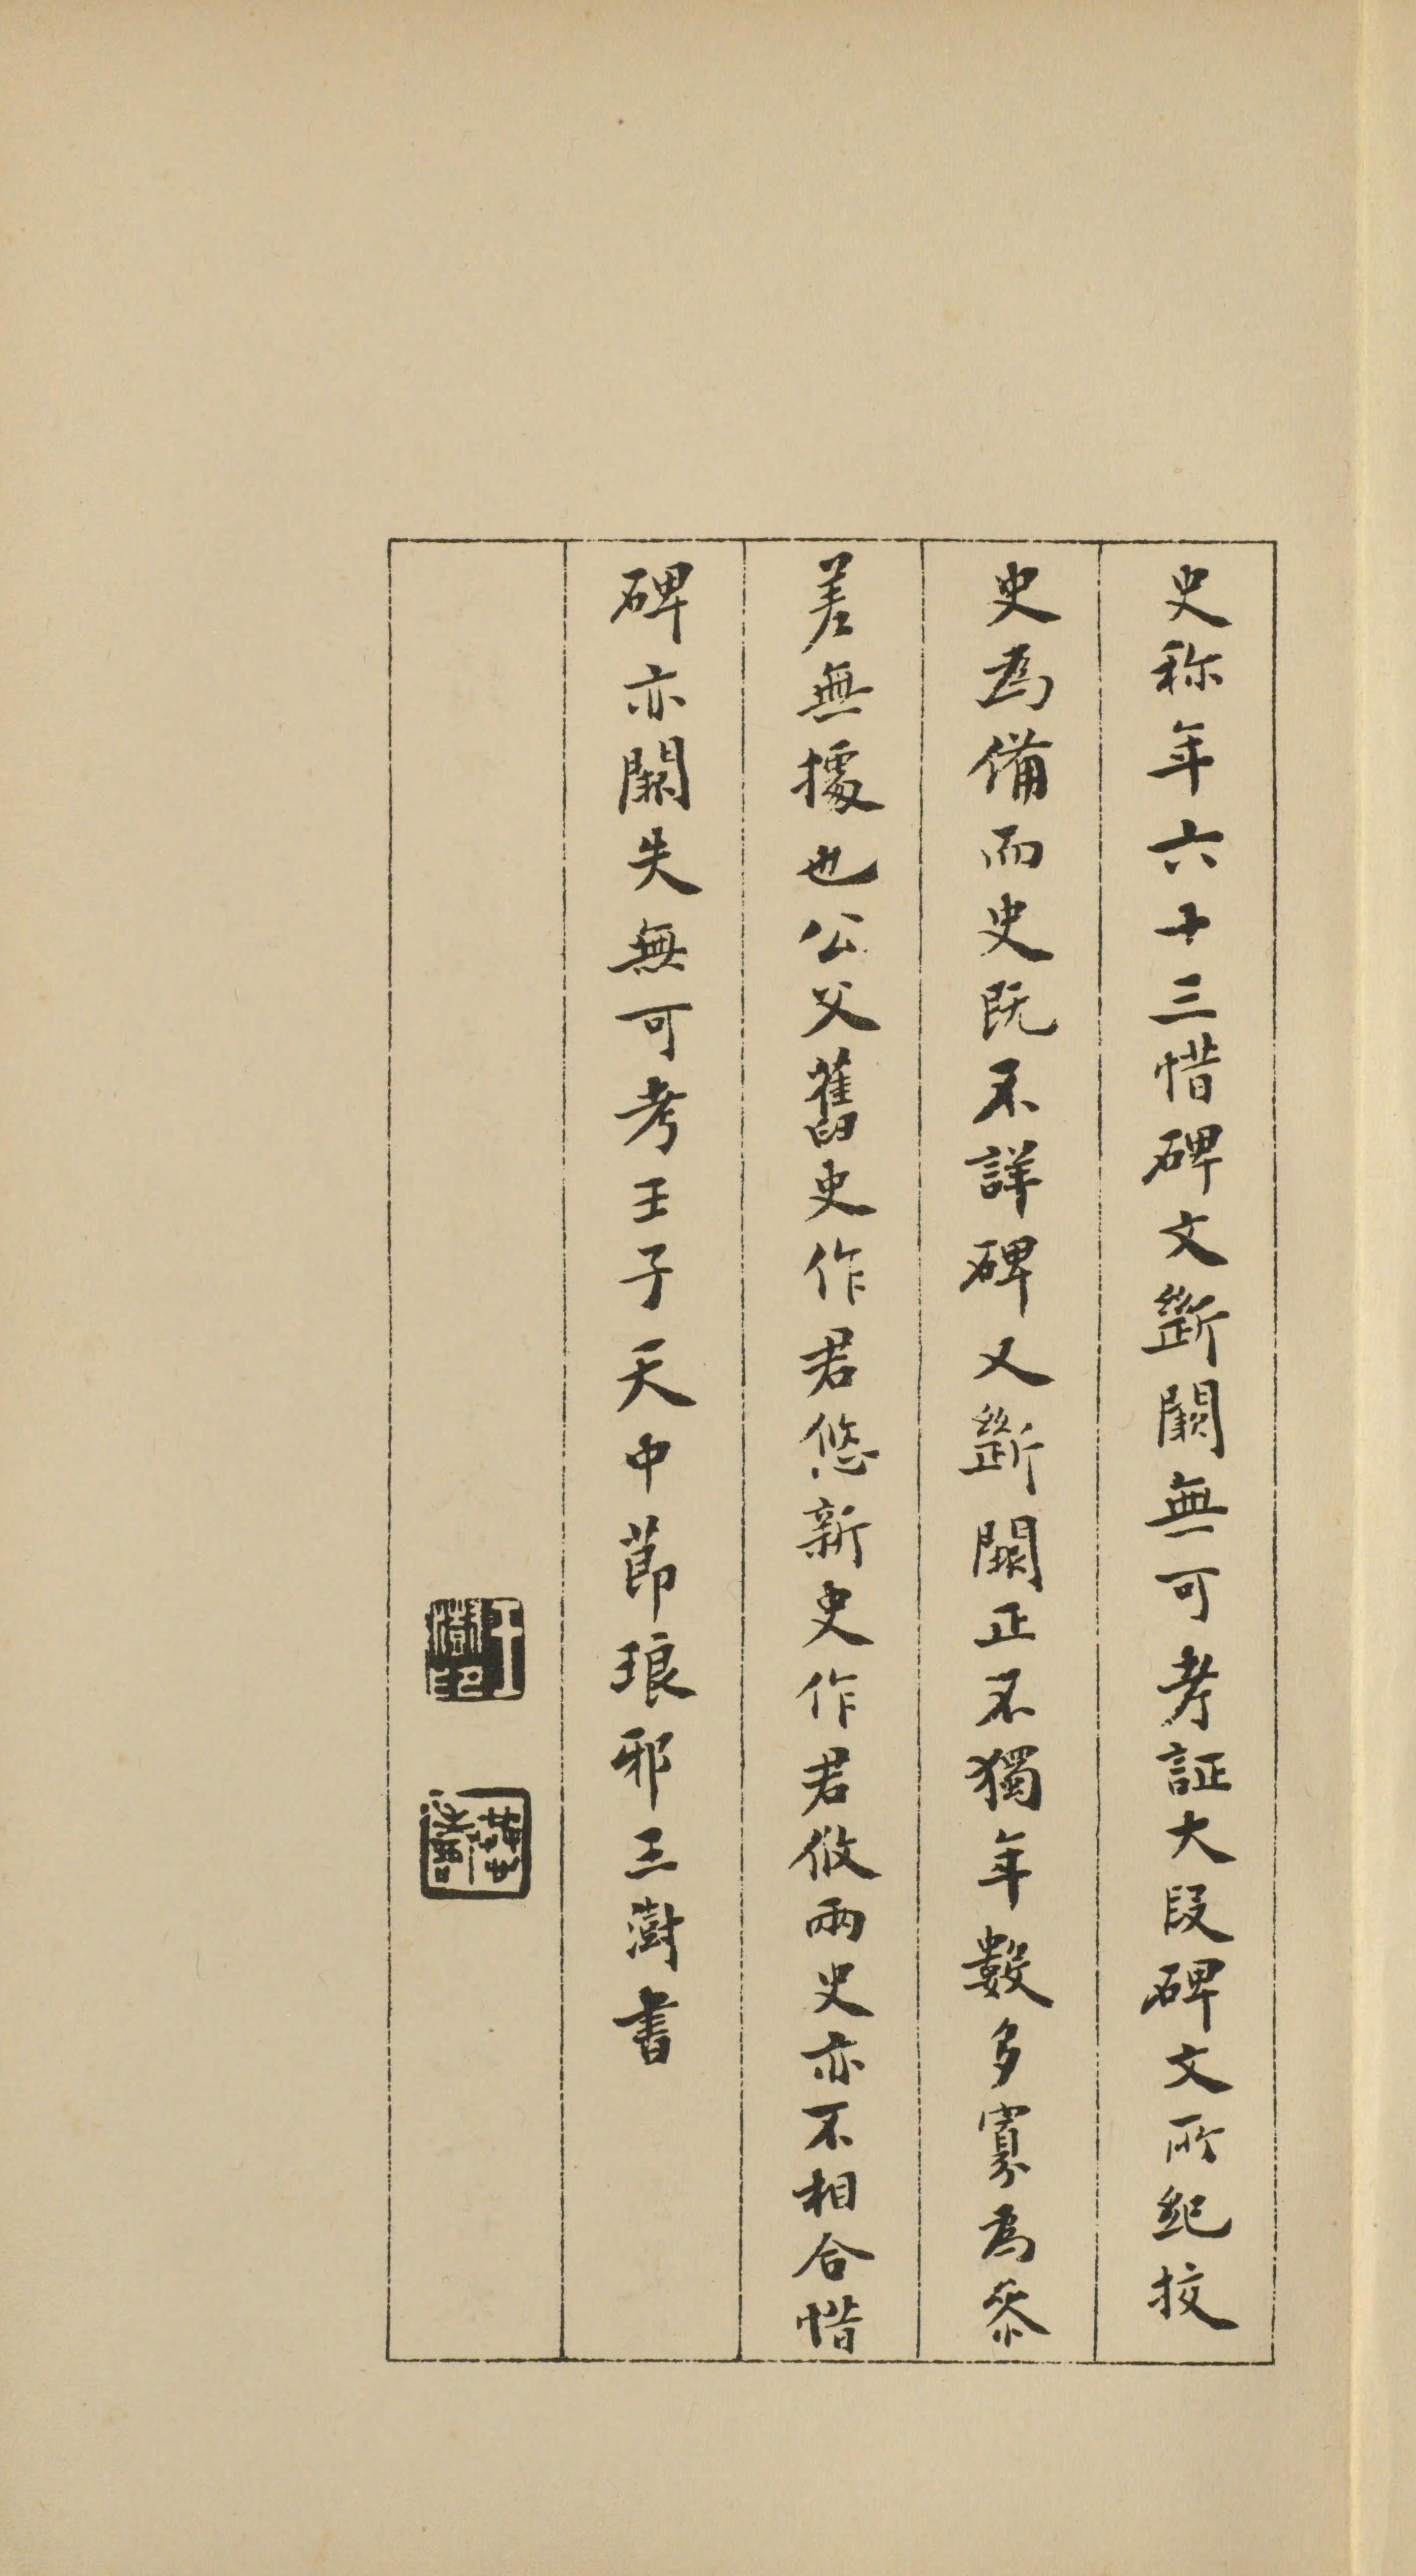 史稱年六十三惜碑文斷闕無可考証大段碑文所紀挍
史為備而史既不詳碑又斷闕正不獨年數多寡為叅
差無據也公父舊史作君悠新史作君攸兩史亦不相合惜
碑亦闕失無可考壬子天中節琅邪王澍書
王澍印